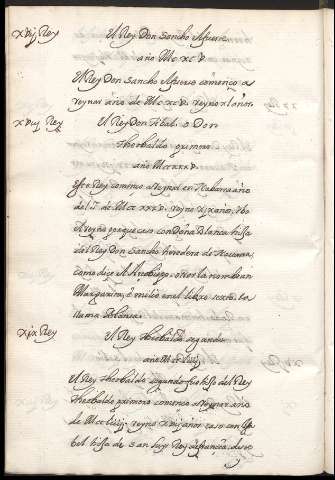 xvij Rey
El Rey Don Sancho
año Mcxcv
El Rey Don Sancho començo a
reynar año de Mcxcv. reyno xl años
xviij Rey
El Rey Don Tibalt o Don
Theobaldo primero
año Mccxxxv
Este Rey començo a Reynar en Nabarra año
del s.r de Mccxxxv. reyno xix años,
el reyno porque caso con Doña Blanca hija
del Rey Don Sancho heredera de Nauarra,
como dize el Arçobispo, otros la nombran
Margarita, o en el libro sexto la
llama Blanca.
xix Rey
El Rey Theobaldo segundo
año
El Rey Theobaldo segundo fue hijo del Rey
Theobaldo primero comença a Reynar año
de reyno años caso con
bel hija de san Luys Rey de françia,